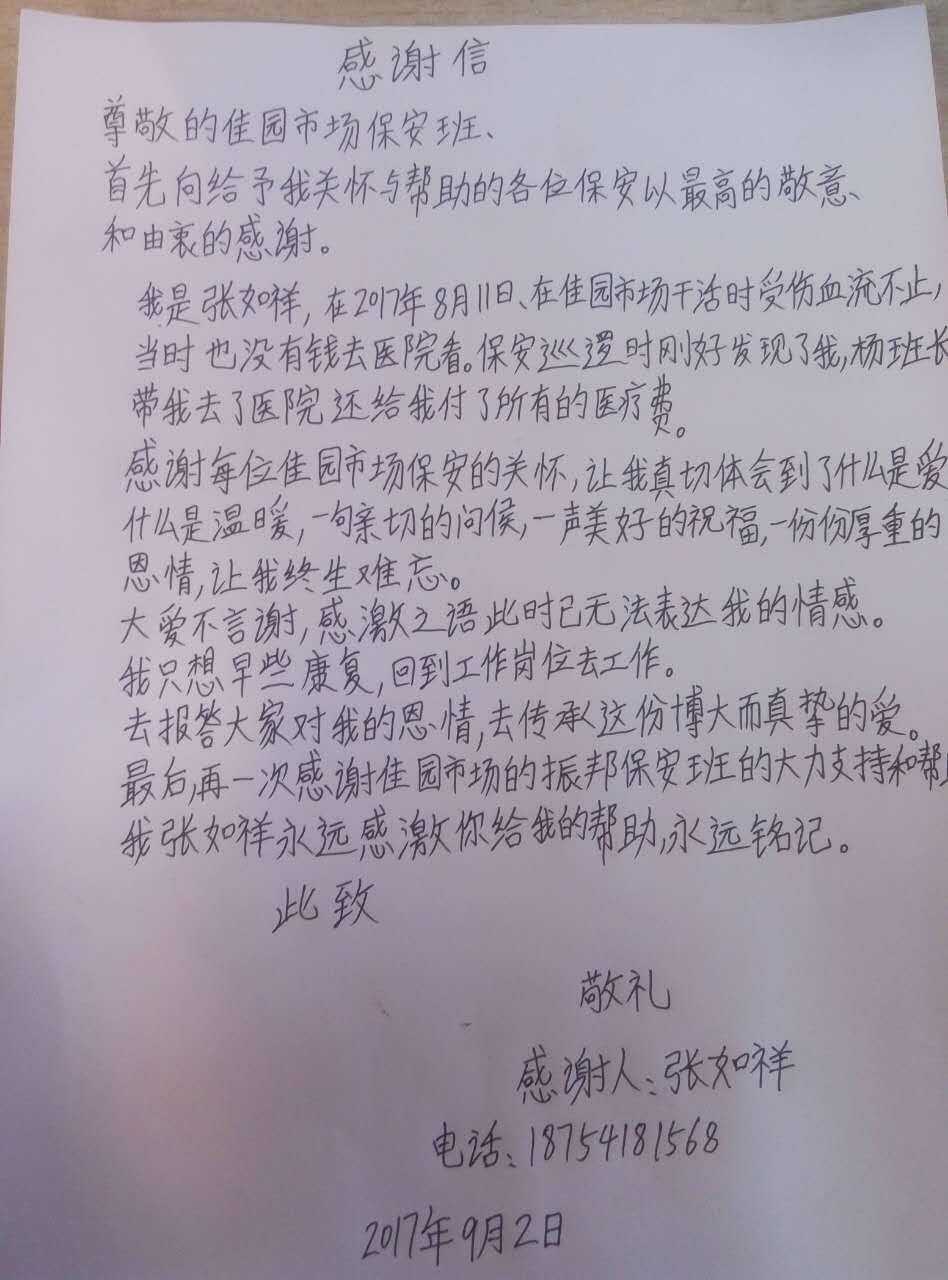 感谢信
尊敬的佳园市场保安班、
首先向给予我关怀与帮助的各位保安以最高的敬意、
和由衷的感谢。
我是张如祥,在2017年8月11日、在佳园市场干活时受伤血流不止,
当时也没有钱去医院看。保安巡逻时刚好发现了我,杨班长
带我去了医院还给我付了所有的医疗费。
感谢每位佳园市场保安的关怀,让我真切体会到了什么是爱
什么是温暖,一句亲切的问候,一声美好的祝福,一份份厚重的
恩情,让我终生难忘。
大爱不言谢,感激之语此时已无法表达我的情感。
我只想早些康复,回到工作岗位去工作。
去报答大家对我的恩情,去传承这份博大而真挚的爱。
最后,再一次感谢佳园市场的振邦保安班的大力支持和帮
我张如祥永远感激你给我的帮助,永远铭记。
此致
敬礼
感谢人:张如祥
电话:18754181568
2017年9月2日